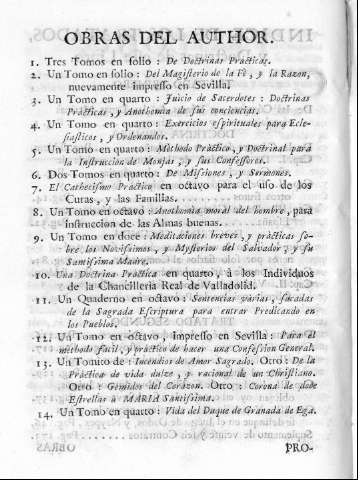 OBRAS DEL AUTHOR.
1. Tres Tomos en folio : De Doctrinas Practicas.
2. Un Tomo en folio : Del Magisterio de la Fè, y la Razon,
nuevamente impresso en Sevilla.
3. Un Tomo en quarto : Juicio de Sacerdotes : Doctrinas
Pràcticas, y Anothomia de sus conciencias.
4. Un Tomo en quarto : Exercicios espirituales para Ecle-
siasticos, y Ordenandos.
5. Un Tomo en quarto : Mèthodo Pràctico, y Doctrinal para
la Instruccion de Monjas, y sus Confessores.
6. Dos Tomos en quarto : De Missiones, y Sermones.
7. El Cathecismo Pràctico en octavo para el uso de los
Curas, y las Familias.
8. Un Tomo en octavo : Anothomia moral del hombre, para
instruccion de las Almas buenas.
9. Un Tomo en doce : Meditaciones breves, y pràcticas so-
bre los Novissimos, y Mysterios del Salvador, y su
Santissima Madre.
10. Una Doctrina Pràctica en quarto, à los Individuos
de la Chancilleria Real de Valladolid.
11. Un Quaderno en octavo : Sentencias varias, sacadas
de la Sagrada Escriptura para entrar Predicando en
los Pueblos.
12. Un Tomo en octavo, impresso en Sevilla : Para el
mèthodo facil, y pràctico de hacer una Confession General.
13. Un Tomito de : Incendios de Amor Sagrado. Otro : De la
Pràctica de vida dulce, y racional de un Christiano.
Otro : Gemidos del Corazon. Otro : Corona de doce
Estrellas à MARIA Santissima.
14. Un Tomo en quarto : Vida del Duque de Granada de Ega.
PRO-